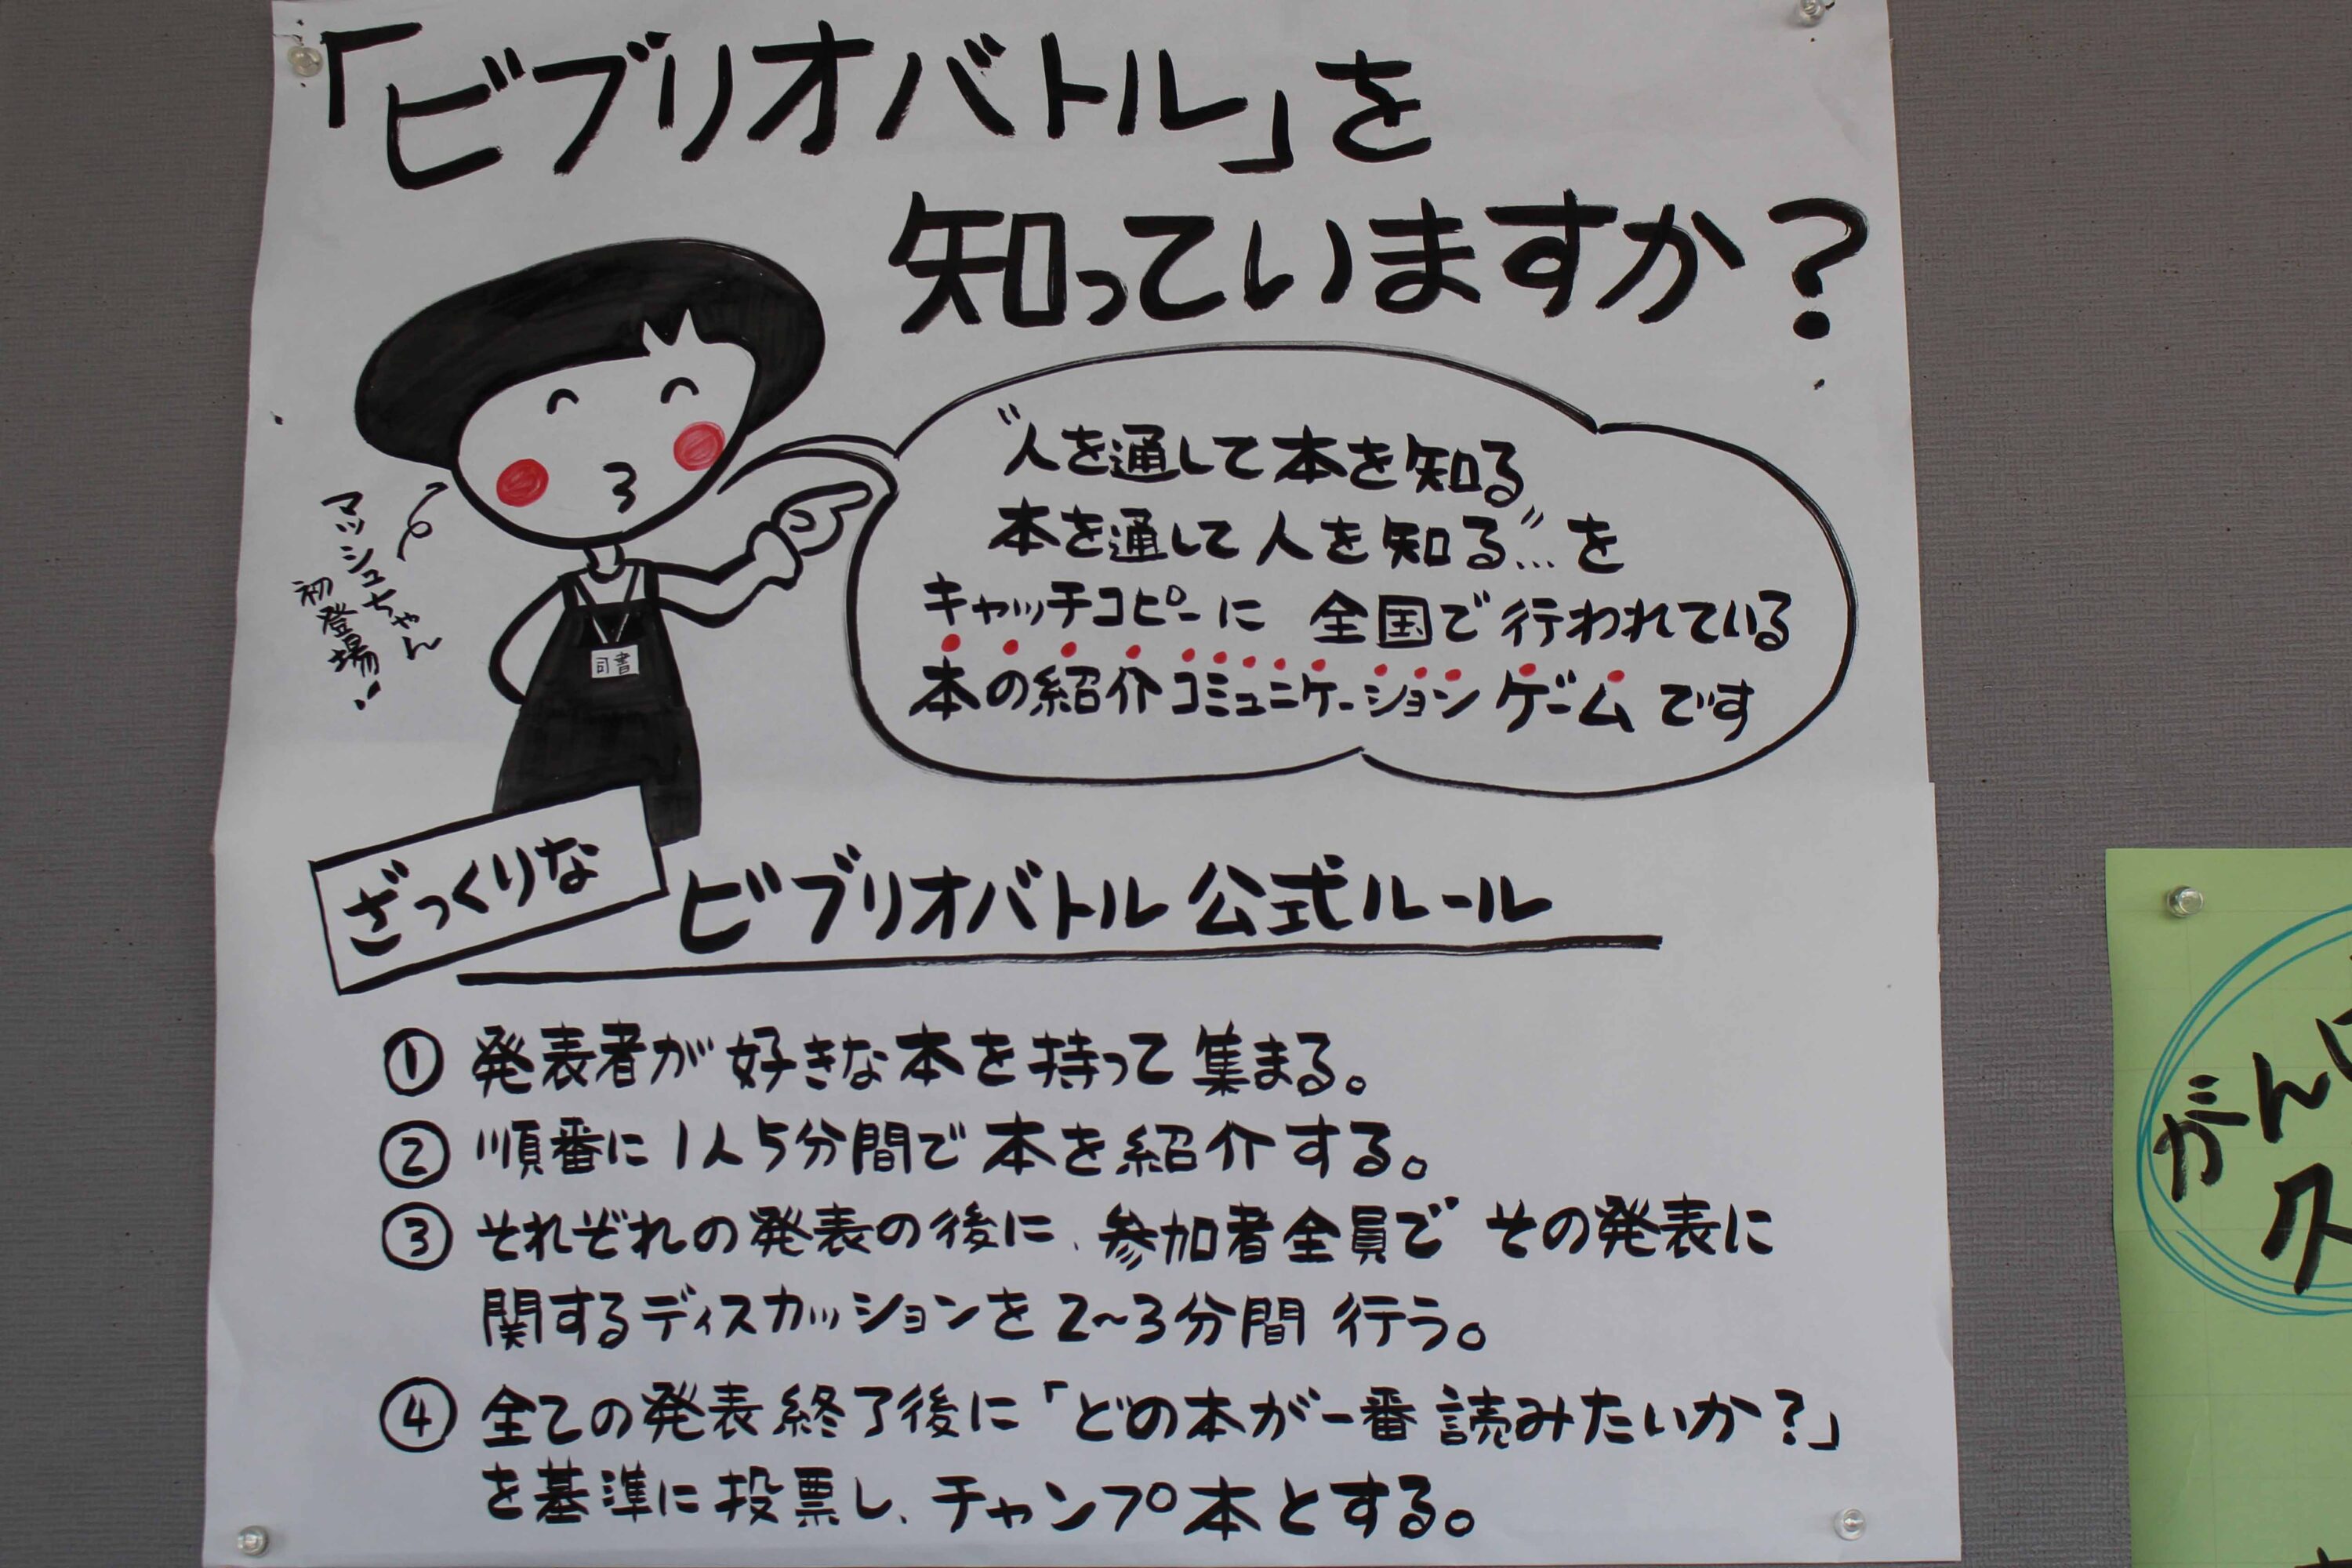 「ビブリオバトル」を
知っていますか?
"人を通して本を知る
本を通して人を知る"…を
キャッチコピーに 全国で行われている
本の紹介コミュニケーションゲームです
マッシュちゃん
初登場!
司書
ざっくりな
ビブリオバトル公式ルール
① 発表者が好きな本を持って集まる。
② 順番に1人5分間で本を紹介する。
③ それぞれの発表の後に、参加者全員でその発表に
関するディスカッションを2~3分間 行う。
④ 全ての発表終了後に「どの本が一番読みたいか?」
を基準に投票し、チャンプ本とする。
がん
ス